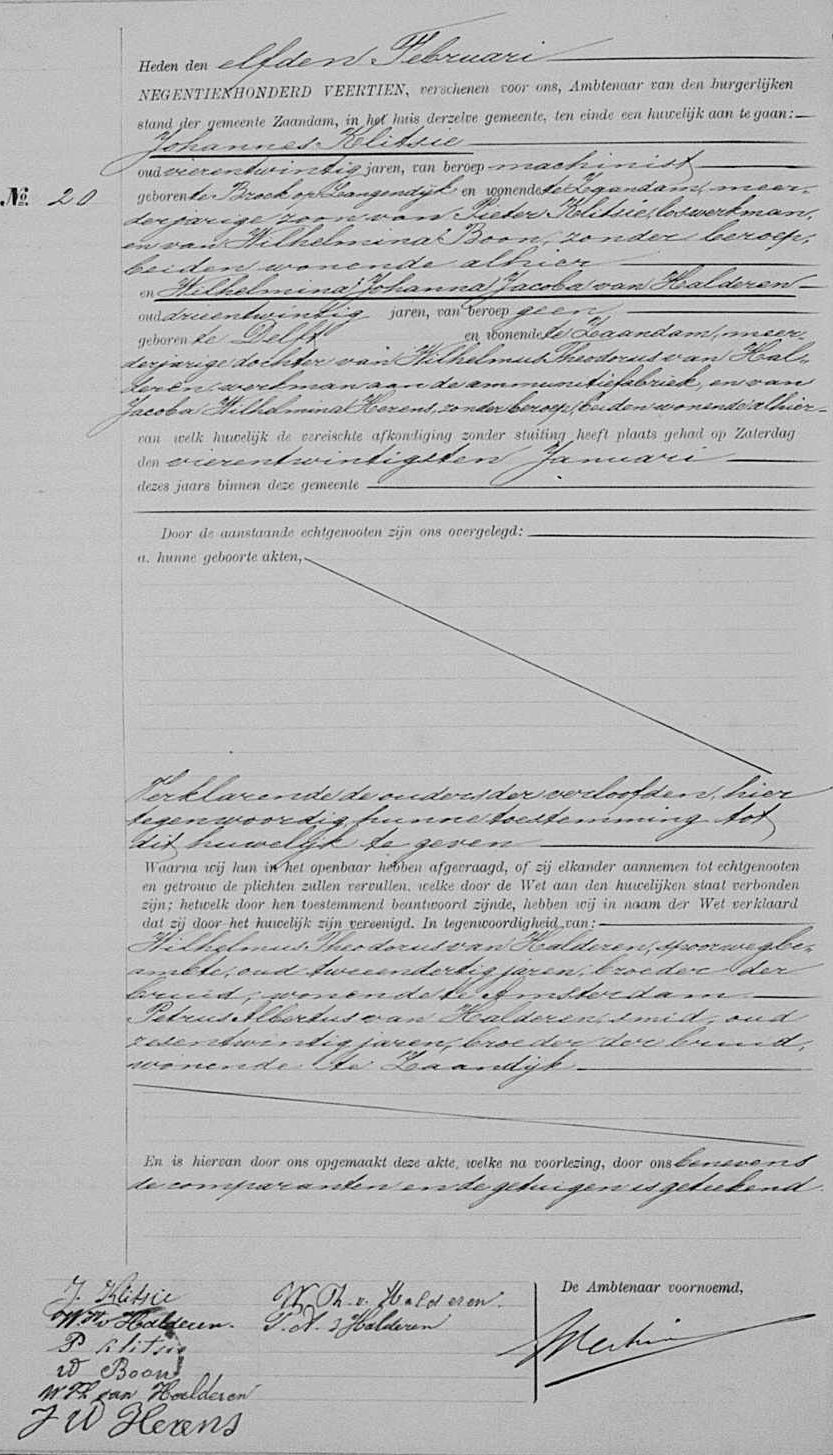 Heden den elfden Februari
NEGENTIENHONDERD VEERTIEN, verschenen voor ons, Ambtenaar van den burgerlijken
stand der gemeente Zaandam, in het huis derzelve gemeente, ten einde een huwelijk aan te gaan:
Johannes Klitsie
oud vierentwintig jaren, van beroep machinist
No. 20
geboren te Broek op Langendijk en wonende te Zaandam, meer-
derjarige zoon van Pieter Klitsie, loswerkman,
en van Wilhelmina Boon, zonder beroep,
beiden wonende alhier
en Wilhelmina Johanna Jacoba van Halderen
oud drieentwintig jaren, van beroep geen
geboren te Delft en wonende te Zaandam, meer-
derjarige dochter van Wilhelmus Theodorus van Hal-
deren, werkman aan de ammunitiefabriek, en van
Jacoba Wilhelmina Herens, zonder beroep, beiden wonende alhier
van welk huwelijk de vereischte afkondiging zonder stuiting heeft plaats gehad op Zaterdag
den vierentwintigsten Januari
dezes jaars binnen deze gemeente
Door de aanstaande echtgenooten zijn ons overgelegd:
a. hunne geboorte akten,
Verklarende de ouders der verloofden, hier
tegenwoordig, hunne toestemming tot
dit huwelijk te geven
Waarna wij hun in het openbaar hebben afgevraagd, of zij elkander aannemen tot echtgenooten
en getrouw de plichten zullen vervullen, welke door de Wet aan den huwelijken staat verbonden
zijn; hetwelk door hen toestemmend beantwoord zijnde, hebben wij in naam der Wet verklaard
dat zij door het huwelijk zijn vereenigd. In tegenwoordigheid van:
Wilhelmus Theodorus van Halderen, spoorwegbe-
ambte, oud tweeendertig jaren, broeder der
bruid, wonende te Amsterdam
Petrus Albertus van Halderen, smid, oud
zesentwintig jaren, broeder der bruid,
wonende te Zaandijk
En is hiervan door ons opgemaakt deze akte, welke na voorlezing, door ons benevens
de comparanten en de getuigen is geteekend.
De Ambtenaar voornoemd,
J. Klitsie
W. Th. v. Halderen.
v Halderen.
P. A. v Halderen
P Klitsie
W Boon
W Th van Halderen
J W Herens